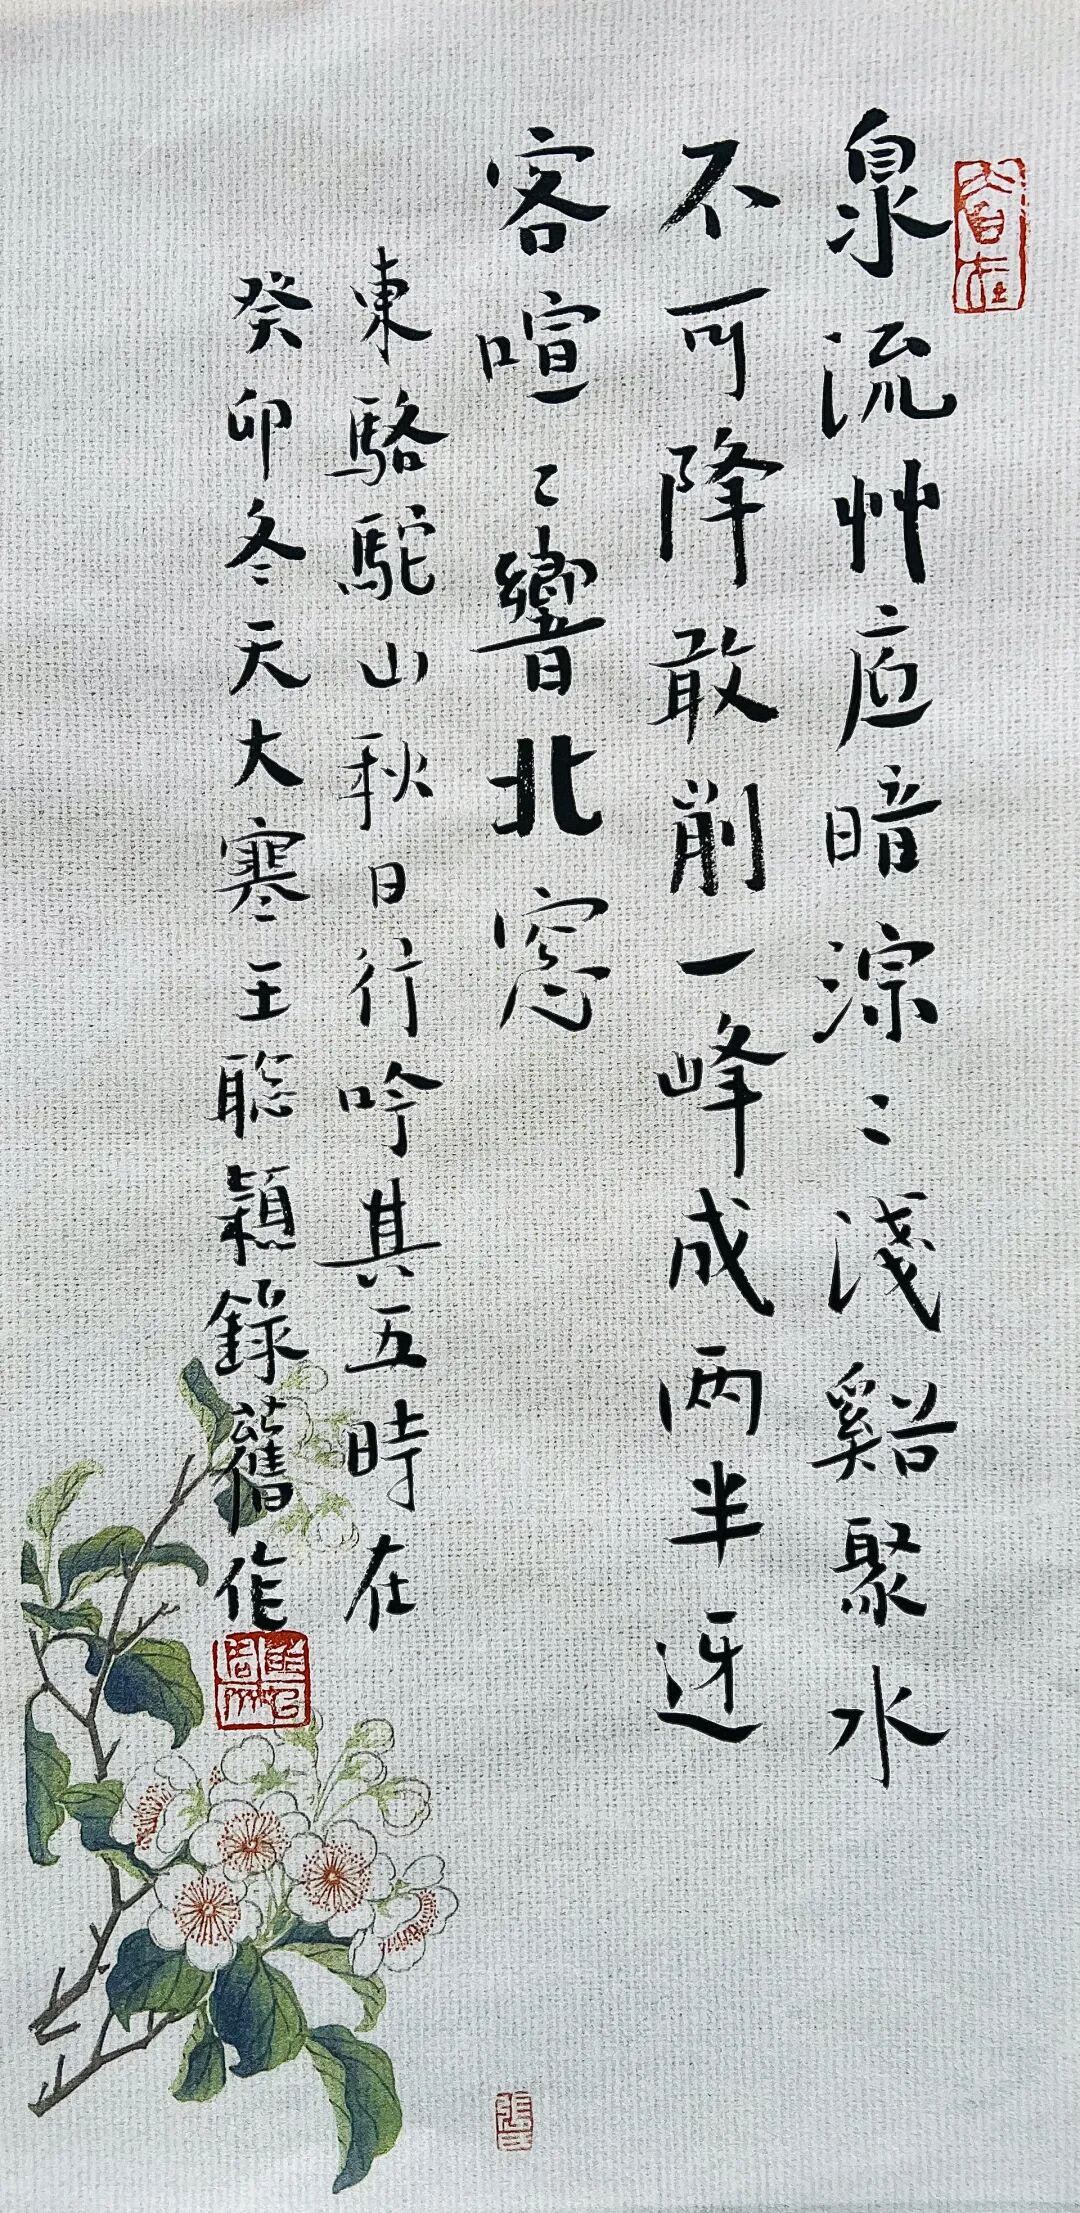 泉流艸底暗淙〻淺谿聚水
不可降敢削一峰成两半迓
客喧〻響北窓
東駱駝山秋日行吟其五時在
癸卯冬天大寒王聡穎錄舊作
大自在